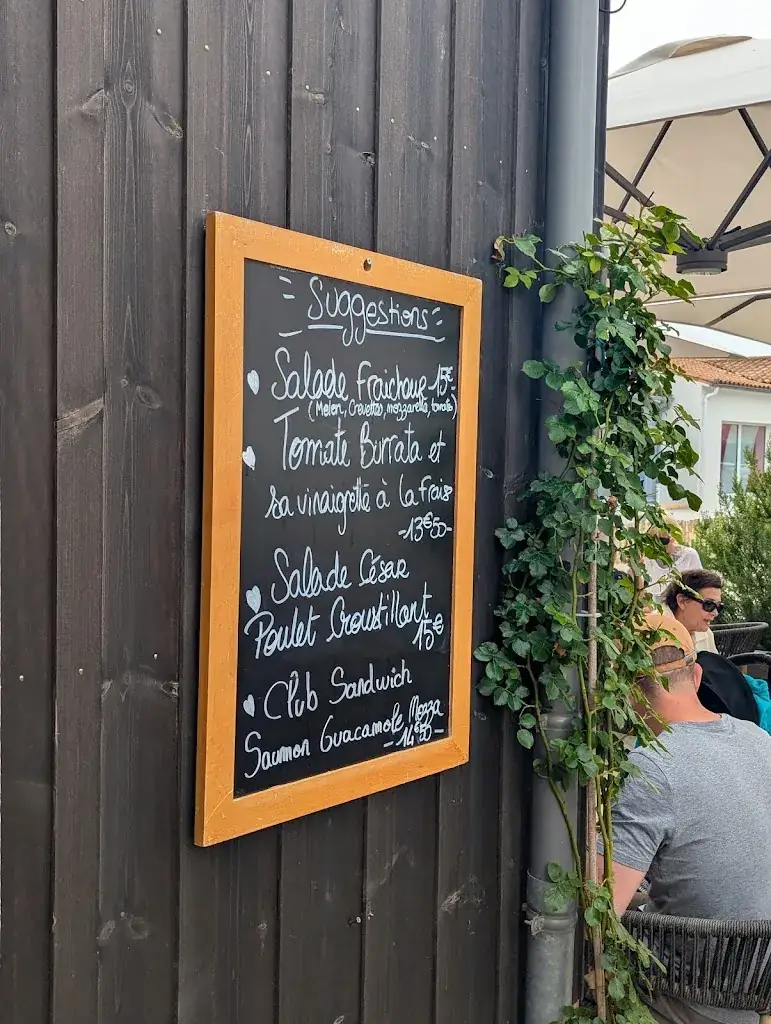 Suggestions
Salade Fraicheur 15€
(Melon, Crevettes, mozzarella, tomate)
Tomate Burrata et
sa vinaigrette à la fraise
-13€50-
Salade César
Poulet Croustillant
15€
Club Sandwich
Saumon Guacamole Mozza
-14€50-